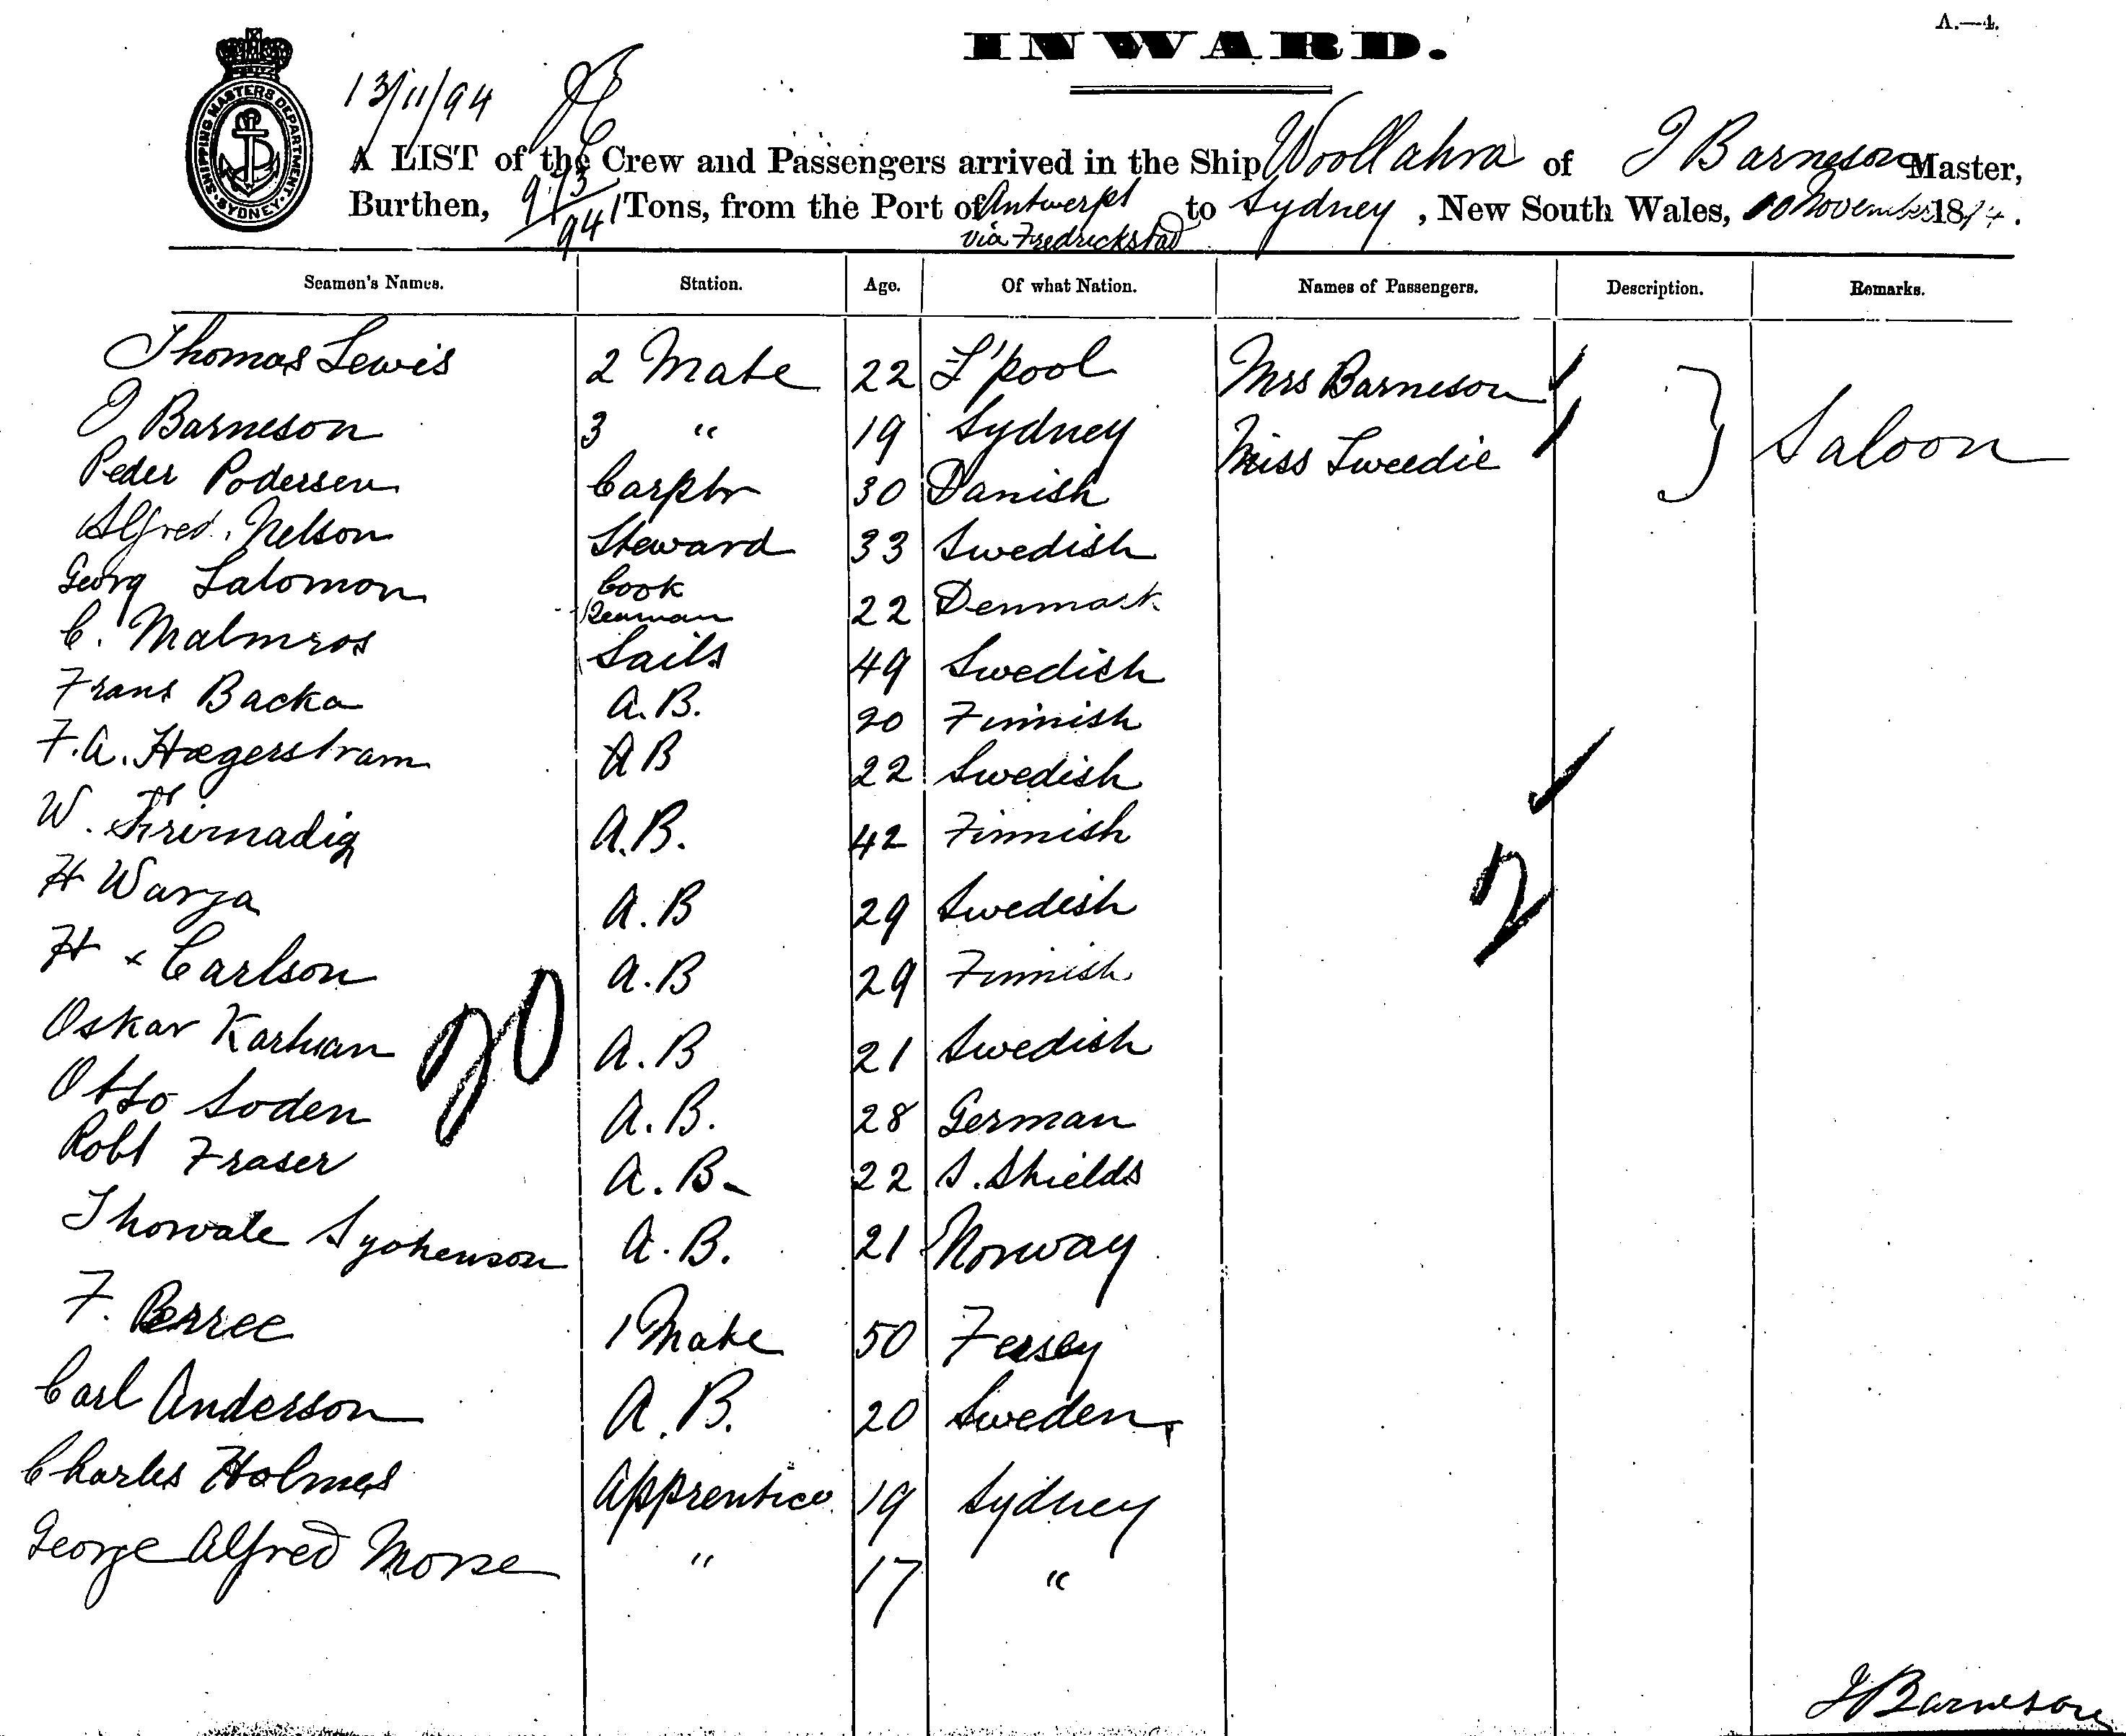 A.—4.
INWARD.
SHIPPING MASTERS DEPARTMENT
SYDNEY
13/11/94
A LIST of the Crew and Passengers arrived in the Ship Woollahra of J Barneson Master,
Burthen, 943/94 Tons, from the Port of Antwerpt to Sydney, New South Wales, 10 November 1894.
via Fredrickstad
Seamen's Names. Station. Age. Of what Nation. Names of Passengers. Description. Remarks.
Thomas Lewis 2 Mate 22 L'pool Mrs Barneson
J Barneson 3 " 19 Sydney Miss Tweedie Saloon
Peder Podersen Carptr 30 Danish
Alfred Nelson Steward 33 Swedish
Georg Salomon Cook Seaman 22 Denmark
C. Malmros Sails 49 Swedish
Frans Backa A.B. 20 Finnish
F.A. Hægerstram A B 22 Swedish
W. A.B. 42 Finnish
H Warja A.B 29 Swedish
H Carlson A.B 29 Finnish
20
2
Oskar Karhuan A.B 21 Swedish
Otto Soden A.B. 28 German
Robt Fraser A.B. 22 S. Shields
Thorvale Syohenson A.B. 21 Norway
F. Perree 1 Mate 50 Jersey
Carl Anderson A.B. 20 Sweden
Charles Holmes Apprentice 19 Sydney
George Alfred Morse " 17 "
J Barneson